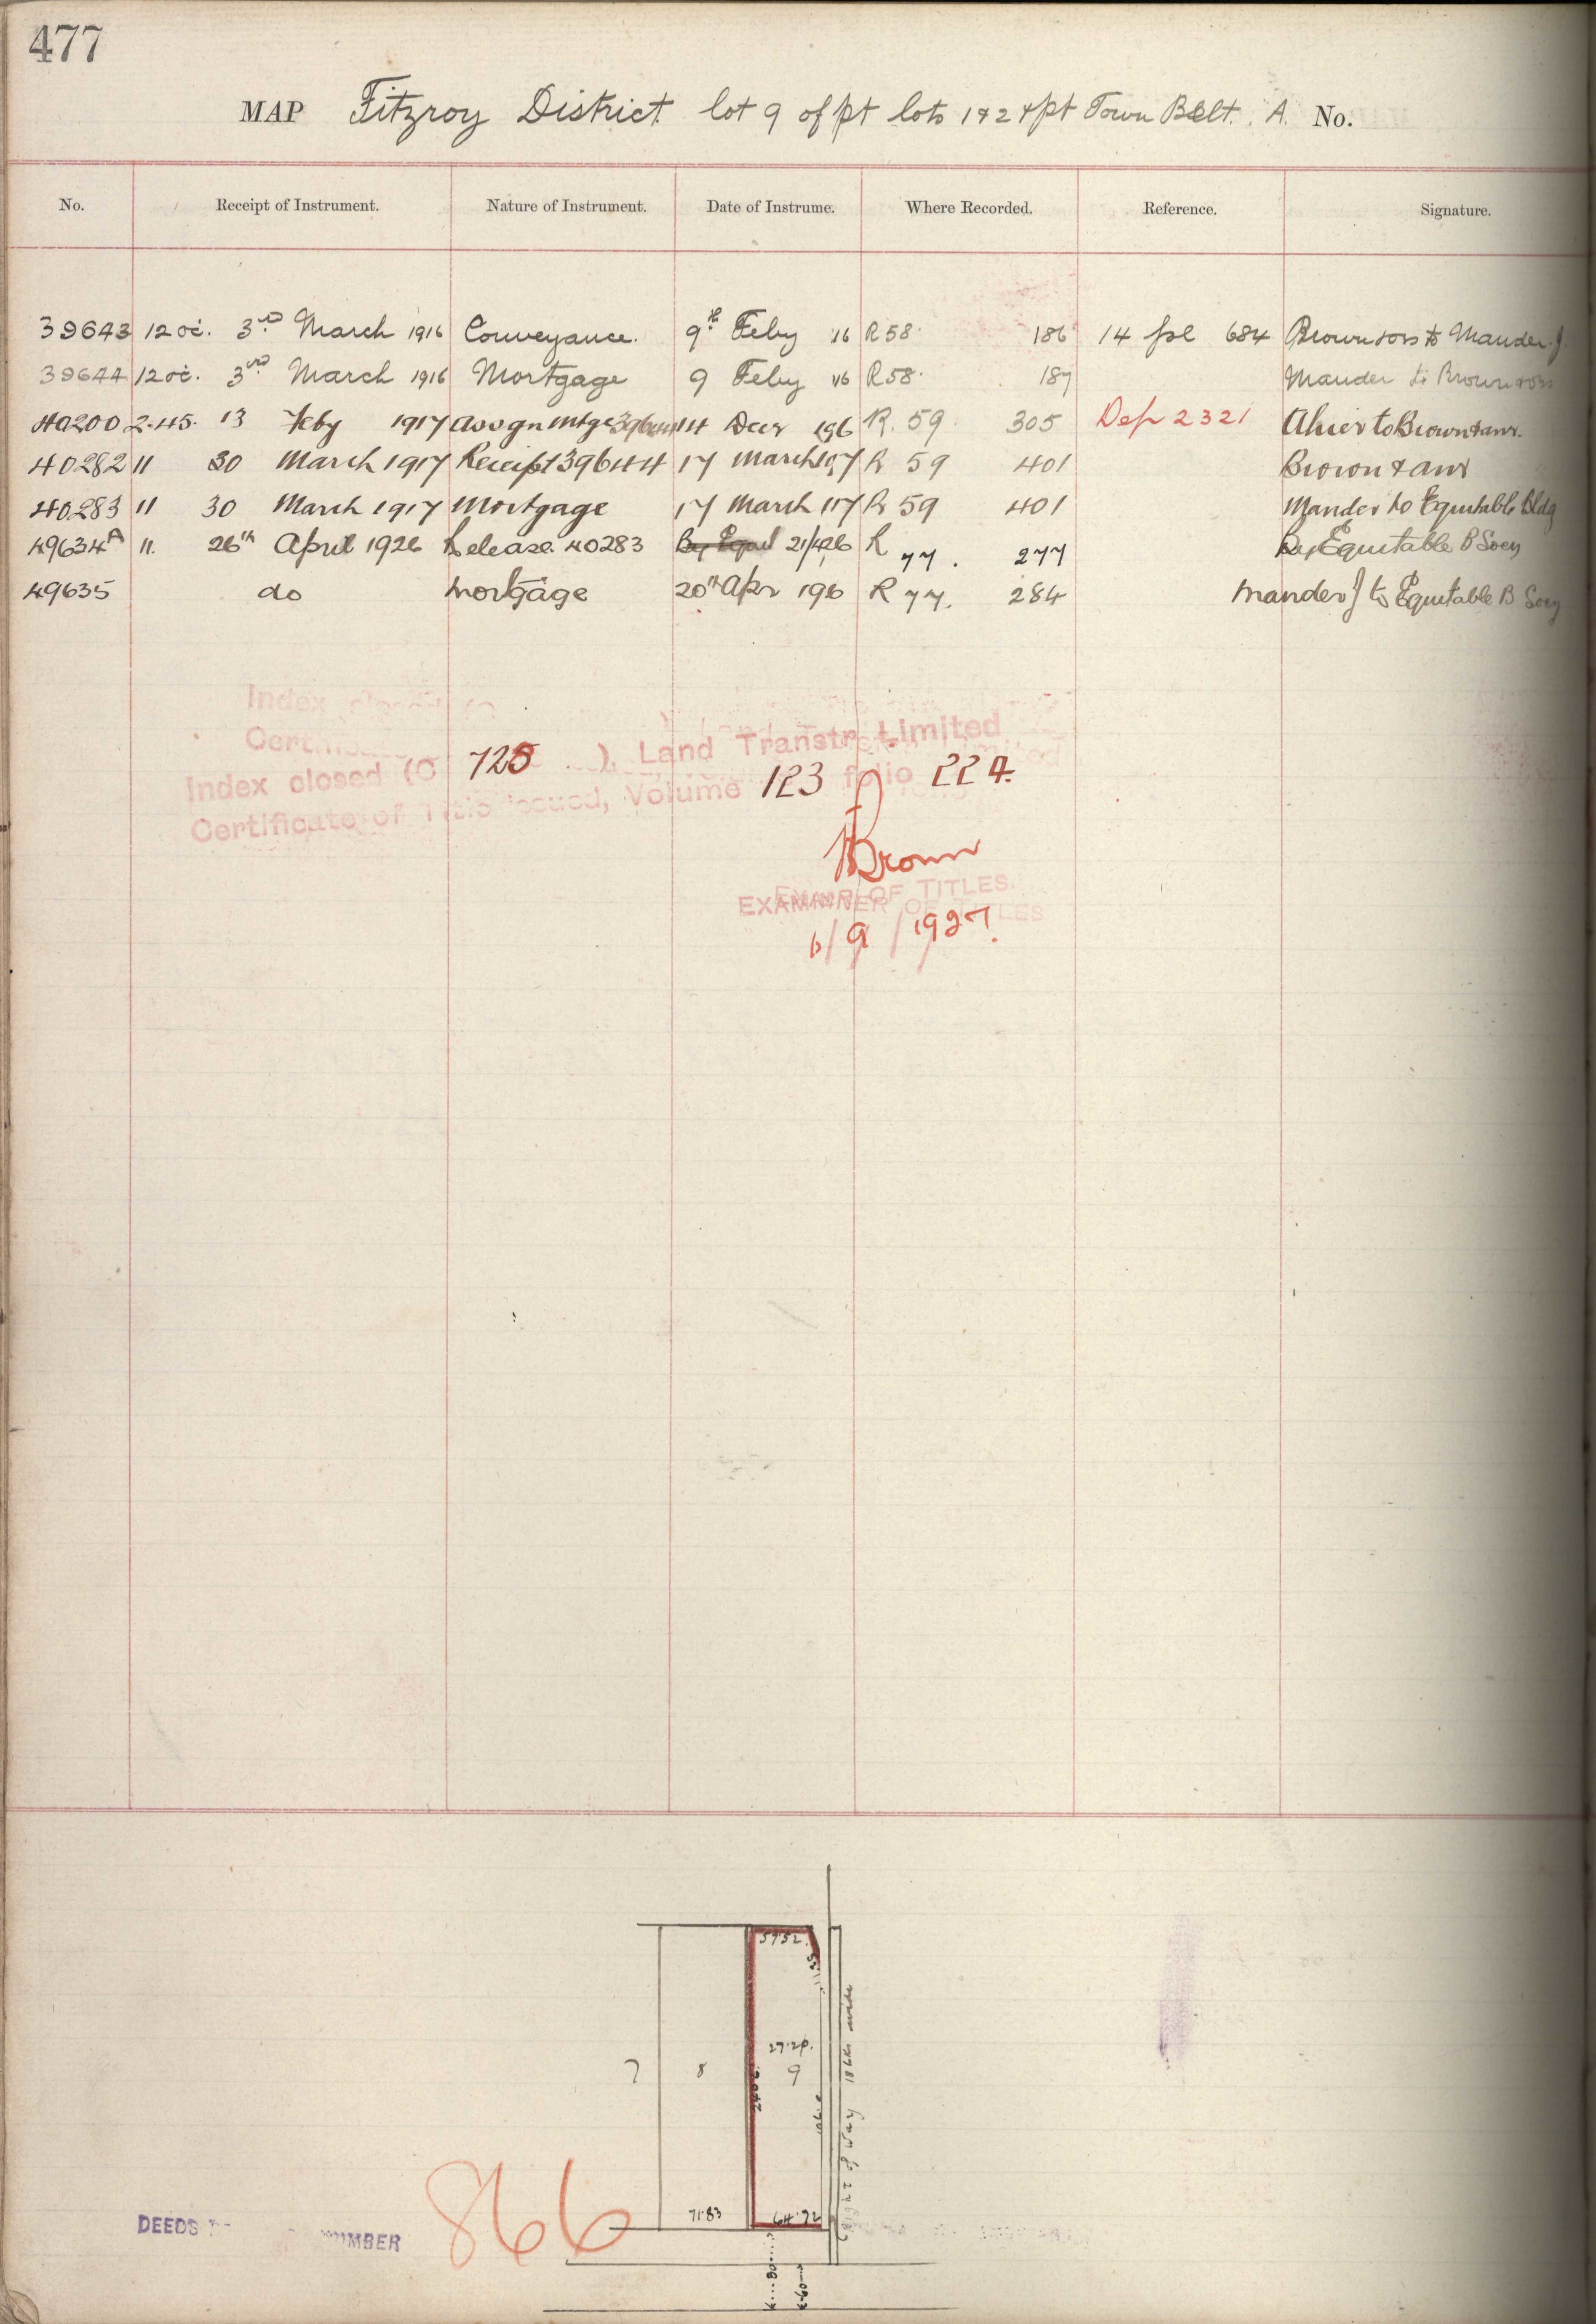 477
MAP Fitzroy District lot 9 of pt lots 1 & 2 & pt Town Belt. A. No.
No. Receipt of Instrument. Nature of Instrument. Date of Instrume. Where Recorded. Reference. Signature.
39643 12 oc. 3rd March 1916 Conveyance. 9th Feby '16 R 58. 186 14 fol 684 Brown & ors to Mander J.
39644 12 oc. 3rd March 1916 Mortgage 9 Feby '16 R 58. 187 Mander to Brown & ors
40200 2.45. 13 Feby 1917 Assgn Mtge 39644 14 Decr 1916 R. 59. 305 Dep 2321 Ahier to Brown & anr.
40282 11 30 March 1917 Receipt 39644 17 March 1917 R 59 401 Brown & anr
40283 11 30 March 1917 Mortgage 17 March 1917 R 59 401 Mander to Equitable Bldg
49634A 11. 26th April 1926 Release 40283 21/4/26 R 77. 277 By Equitable B Socy
49635 do Mortgage 20th Apr 1926 R 77. 284 Mander J to Equitable B Socy
Index closed (C 725 ), Land Transfr. Limited
Certificate of Title issued, Volume 123 folio 224.
Brown
EXAMINER OF TITLES
6/9/1927.
57.52
27.2p.
7 8 9
Right of Way 18 lks wide
71.83 64.72
DEEDS NUMBER 866
80
60